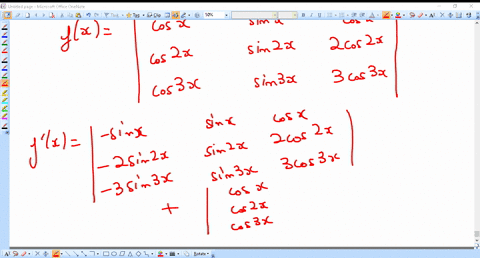 Untitled page - Microsoft Office OneNote
50%
f(x) = | cos x sin x cos x |
| cos 2x sin 2x 2 cos 2x |
| cos 3x sin 3x 3 cos 3x |
f'(x) = | -sin x sin x cos x |
| -2 sin 2x sin 2x 2 cos 2x |
| -3 sin 3x sin 3x 3 cos 3x |
+ | cos x
| cos 2x
| cos 3x
Rotate